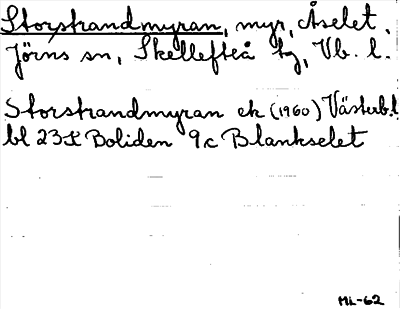 Storstrandmyran, myr, Åselet,
Jörns sn, Skellefteå tg, Vb. l.
Storstrandmyran ek (1960) Västerb.l
bl 23K Boliden 9c Blankselet
ML-62